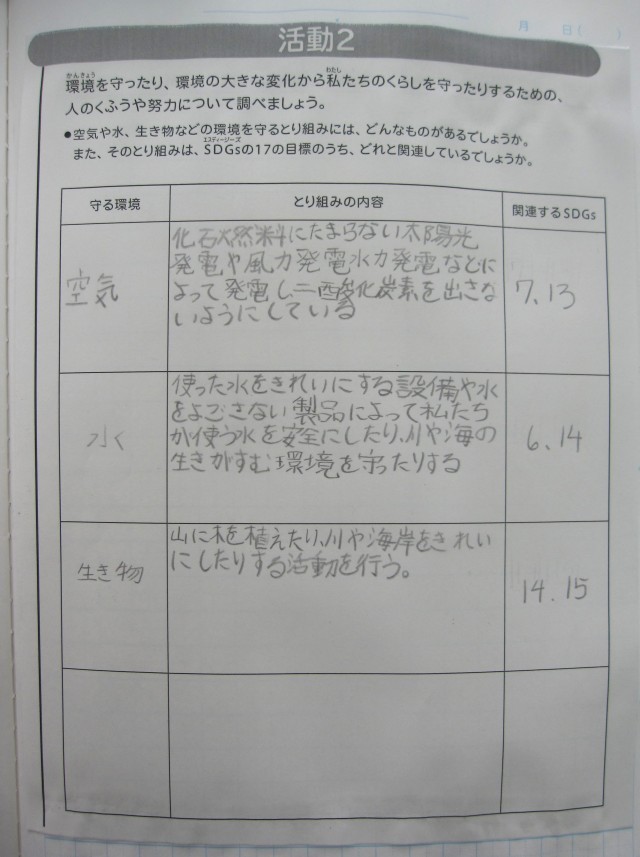 月 日( )
活動2
環境を守ったり、環境の大きな変化から私たちのくらしを守ったりするための、
人のくふうや努力について調べましょう。
●空気や水、生き物などの環境を守るとり組みには、どんなものがあるでしょうか。
また、そのとり組みは、SDGsの17の目標のうち、どれと関連しているでしょうか。
守る環境 とり組みの内容 関連するSDGs
空気
化石燃料にたまらない太陽光
発電や風力発電水力発電などに
よって発電し二酸化炭素を出さな
いようにしている
7.13
水
使った水をきれいにする設備や水
をよごさない製品によって私たち
が使う水を安全にしたり、川や海の
生きがすむ環境を守ったりする
6.14
生き物
山に木を植えたり、川や海岸をきれい
にしたりする活動を行う。
14.15